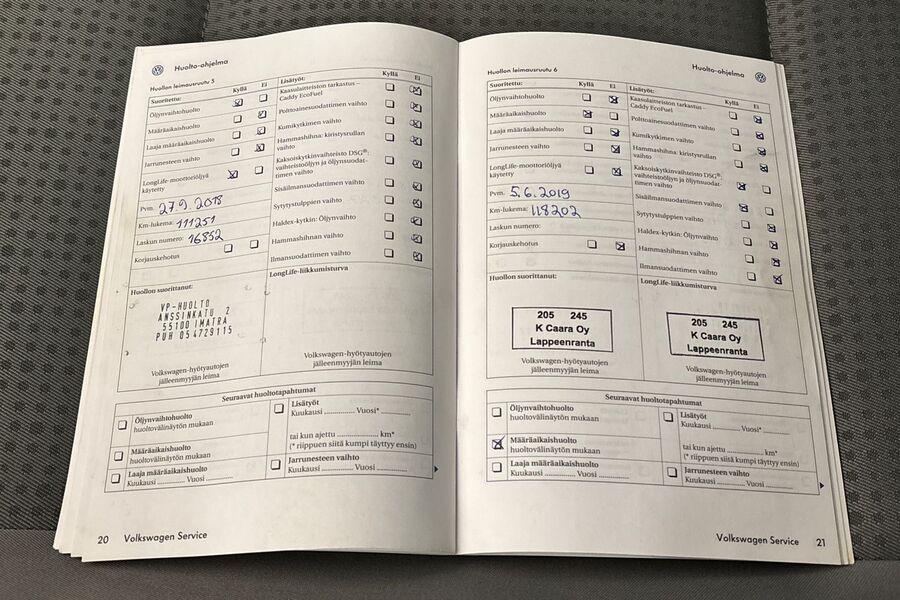 Huolto-ohjelma
Huollon leimausruutu 5
Suoritettu: Kyllä Ei
Öljynvaihtohuolto
Määräaikaishuolto
Laaja määräaikaishuolto
Jarrunesteen vaihto
LongLife-moottoriöljyä
käytetty
Pvm. 27.9.2018
Km-lukema: 111251
Laskun numero: 16852
Korjauskehotus
Lisätyöt: Kyllä Ei
Kaasulaitteiston tarkastus –
Caddy EcoFuel
Polttoainesuodattimen vaihto
Kumikytkimen vaihto
Hammashihna: kiristysrullan
vaihto
Kaksoiskytkinvaihteisto DSG®:
vaihteistoöljyn ja öljynsuodat-
timen vaihto
Sisäilmansuodattimen vaihto
Sytytystulppien vaihto
Haldex-kytkin: Öljynvaihto
Hammashihnan vaihto
Ilmansuodattimen vaihto
Huollon suorittanut:
VP-HUOLTO
ANSSINKATU 2
55100 IMATRA
PUH 054729115
Volkswagen-hyötyautojen
jälleenmyyjän leima
LongLife-liikkumisturva
Volkswagen-hyötyautojen
jälleenmyyjän leima
Seuraavat huoltotapahtumat
Öljynvaihtohuolto
huoltovälinäytön mukaan
Määräaikaishuolto
huoltovälinäytön mukaan
Laaja määräaikaishuolto
Kuukausi ............ Vuosi ............
Lisätyöt
Kuukausi ............ Vuosi* ............
tai kun ajettu ................ km*
(* riippuen siitä kumpi täyttyy ensin)
Jarrunesteen vaihto
Kuukausi ............ Vuosi ............
20 Volkswagen Service
Huolto-ohjelma
Huollon leimausruutu 6
Suoritettu: Kyllä Ei
Öljynvaihtohuolto
Määräaikaishuolto
Laaja määräaikaishuolto
Jarrunesteen vaihto
LongLife-moottoriöljyä
käytetty
Pvm. 5.6.2019
Km-lukema: 118202
Laskun numero:
Korjauskehotus
Lisätyöt: Kyllä Ei
Kaasulaitteiston tarkastus –
Caddy EcoFuel
Polttoainesuodattimen vaihto
Kumikytkimen vaihto
Hammashihna: kiristysrullan
vaihto
Kaksoiskytkinvaihteisto DSG®:
vaihteistoöljyn ja öljynsuodat-
timen vaihto
Sisäilmansuodattimen vaihto
Sytytystulppien vaihto
Haldex-kytkin: Öljynvaihto
Hammashihnan vaihto
Ilmansuodattimen vaihto
Huollon suorittanut:
205 245
K Caara Oy
Lappeenranta
Volkswagen-hyötyautojen
jälleenmyyjän leima
LongLife-liikkumisturva
205 245
K Caara Oy
Lappeenranta
Volkswagen-hyötyautojen
jälleenmyyjän leima
Seuraavat huoltotapahtumat
Öljynvaihtohuolto
huoltovälinäytön mukaan
Määräaikaishuolto
huoltovälinäytön mukaan
Laaja määräaikaishuolto
Kuukausi ............ Vuosi ............
Lisätyöt
Kuukausi ............ Vuosi* ............
tai kun ajettu ................ km*
(* riippuen siitä kumpi täyttyy ensin)
Jarrunesteen vaihto
Kuukausi ............ Vuosi ............
Volkswagen Service 21